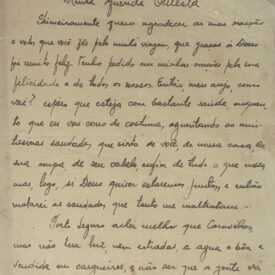 Minha querida Celeste
Primeiramente quero agradecer as suas orações
e votos que você fez pela minha viagem, que graças a Deus
foi muito feliz. Tenho pedido em minhas orações pela sua
felicidade e de todos os nossos. Então meu anjo, como
vai? espero que esteja com bastante saúde enquan-
to que eu vou como de costume, aguentando as mui-
tissimas saudades, que sinto de você, de nossa casa de
sua roupa de seu cabelo, enfim de tudo o que nosso
mas, logo, si Deus quiser estaremos juntos, e então
matarei as saudades, que tanto me maltratam. —
Porto Seguro achei melhor que Caravelas
mas não tem luz nem estradas, a agua e bôa e
vendida em cargueiros, a não ser que a gente vá